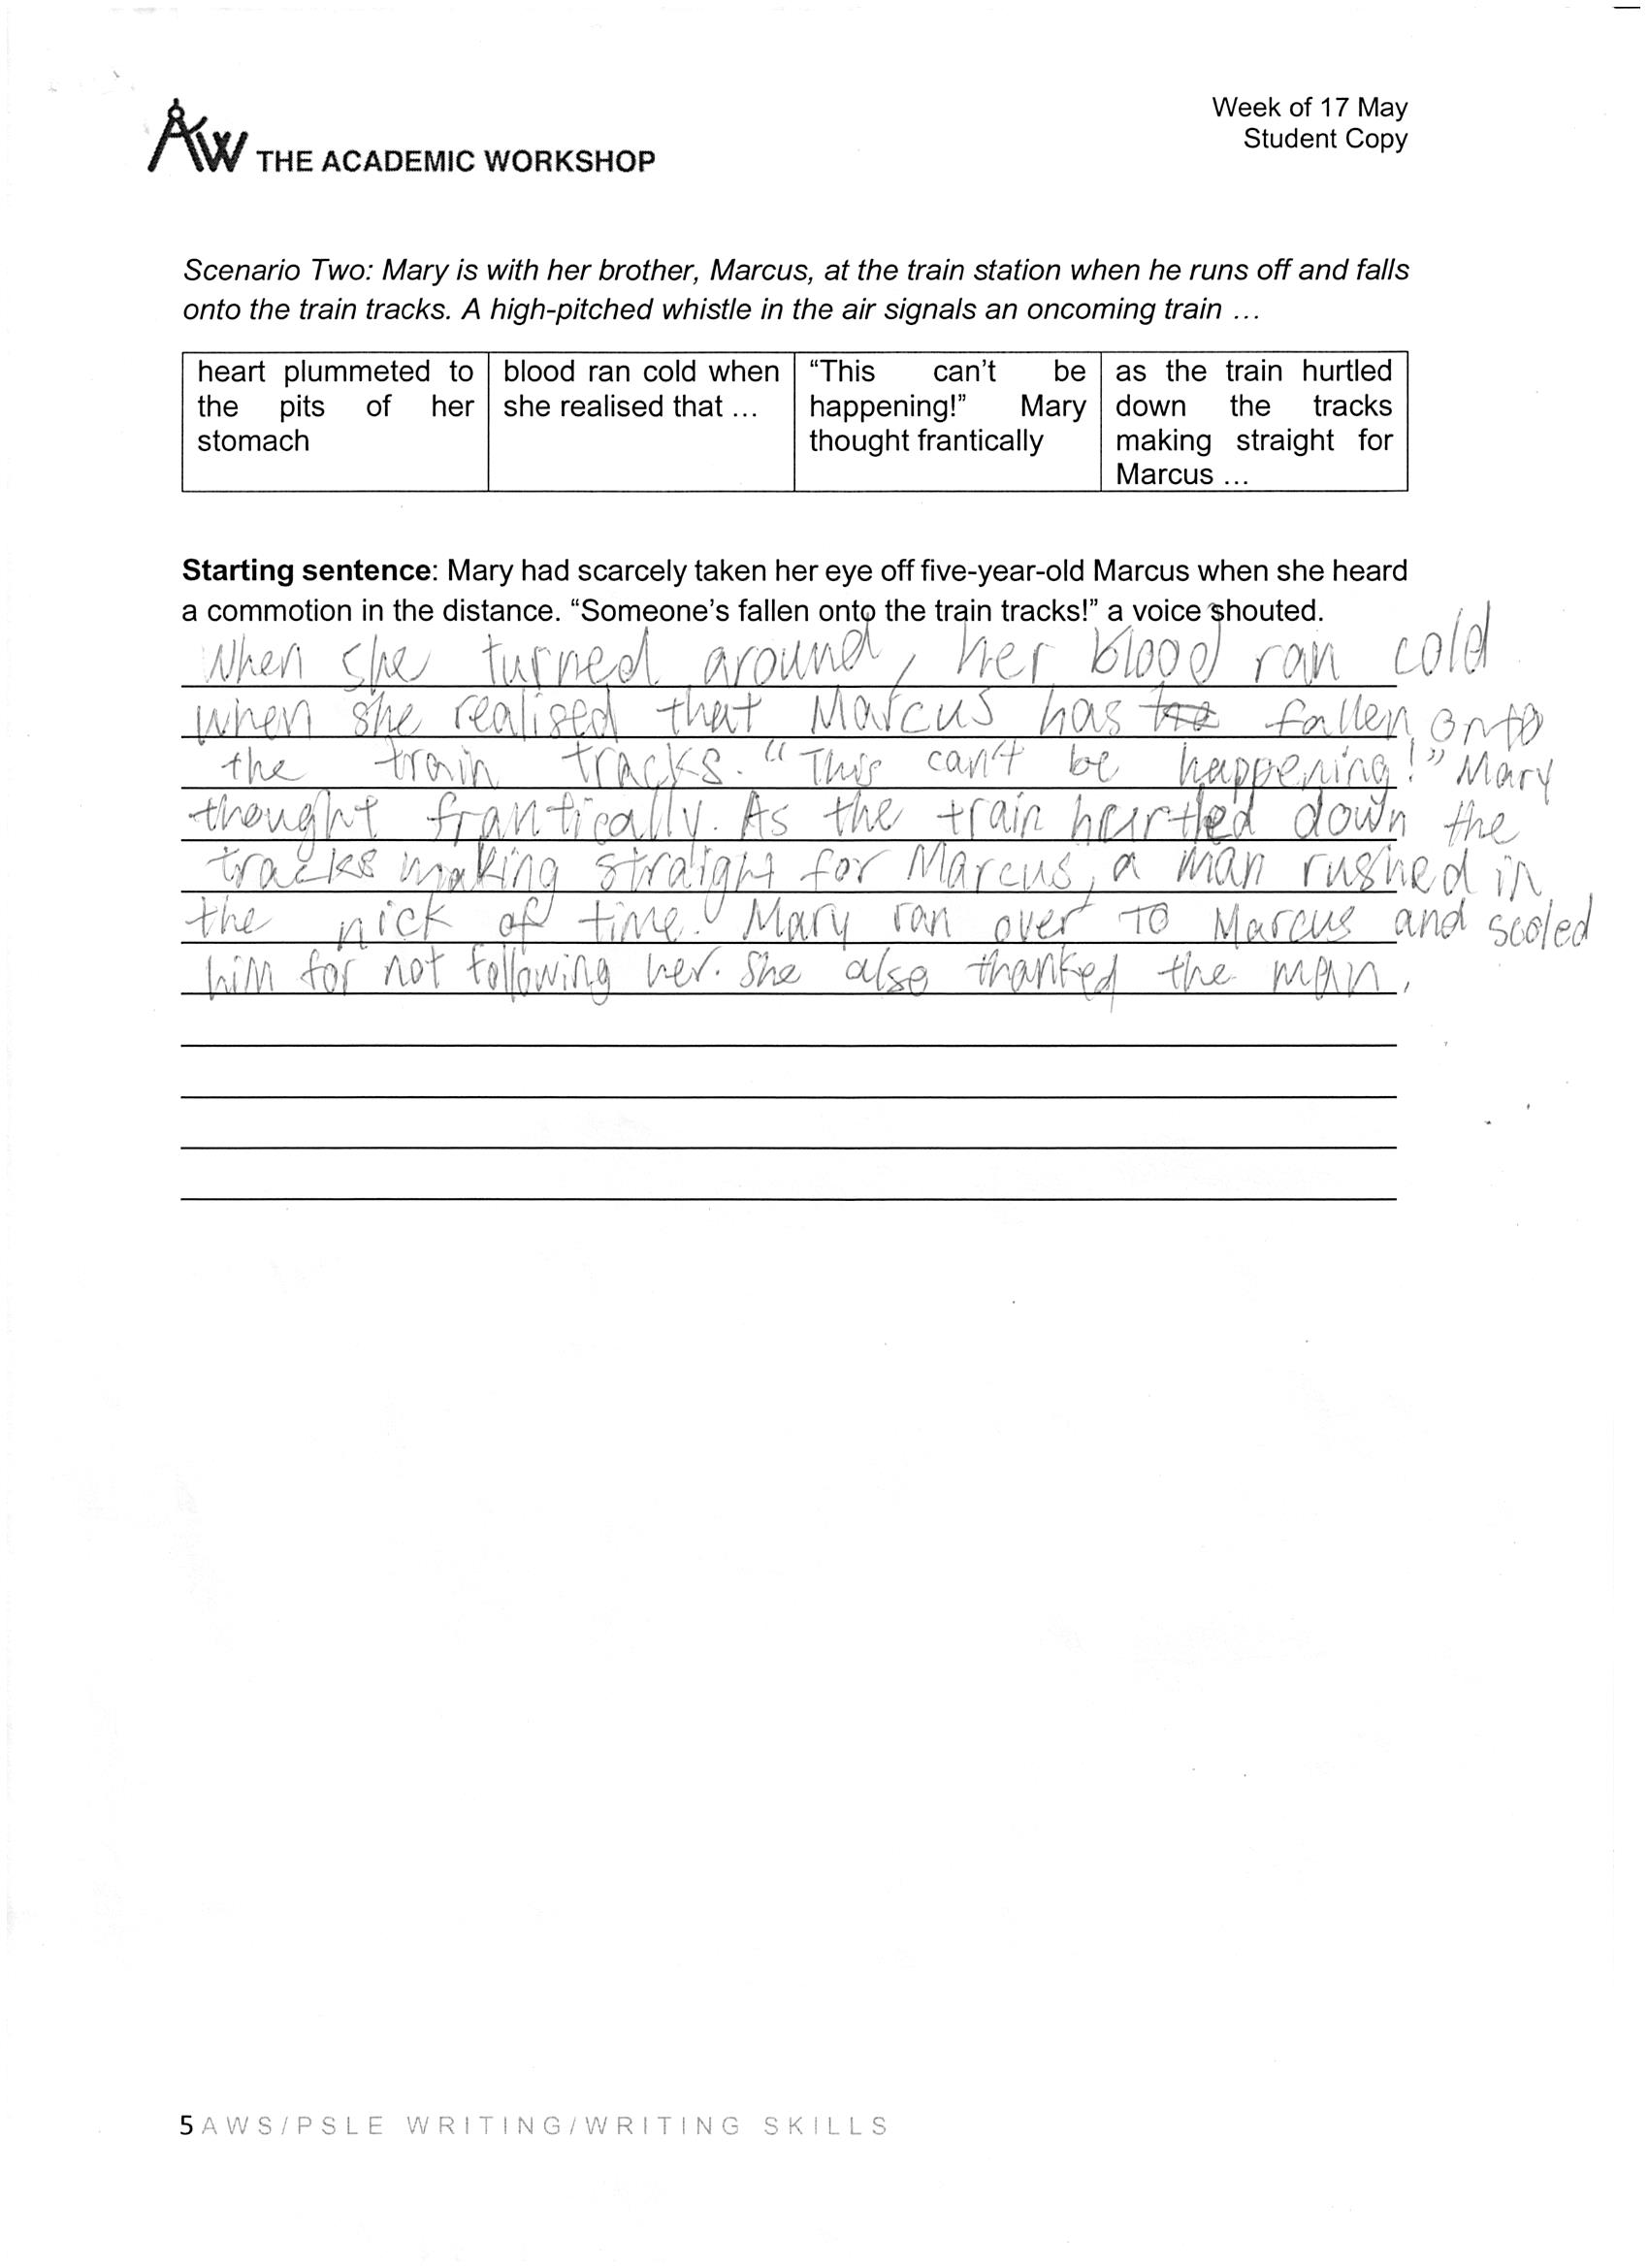 Week of 17 May
Student Copy
AW THE ACADEMIC WORKSHOP
Scenario Two: Mary is with her brother, Marcus, at the train station when he runs off and falls
onto the train tracks. A high-pitched whistle in the air signals an oncoming train ...
heart plummeted to the pits of her stomach
blood ran cold when she realised that ...
“This can’t be happening!” Mary thought frantically
as the train hurtled down the tracks making straight for Marcus ...
Starting sentence: Mary had scarcely taken her eye off five-year-old Marcus when she heard
a commotion in the distance. “Someone’s fallen onto the train tracks!” a voice shouted.
When she turned around, her blood ran cold
when she realised that Marcus has fallen onto
the train tracks. “This can't be happening!” Mary
thought frantically. As the train hurtled down the
tracks making straight for Marcus, a man rushed in
the nick of time. Mary ran over to Marcus and scoled
him for not following her. She also thanked the man.
5 AWS/PSLE WRITING/WRITING SKILLS